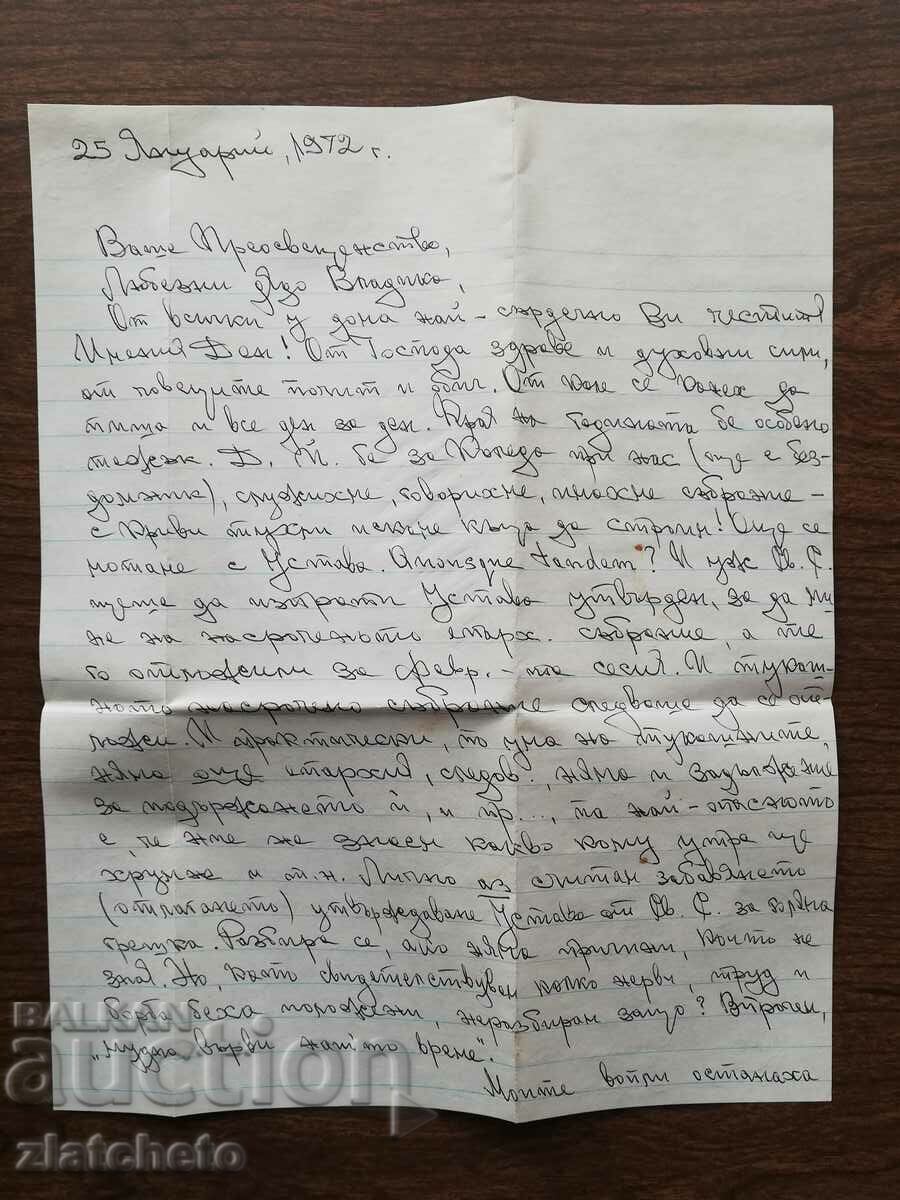 25 Януарий, 1972 г.
Ваше Преосвещенство,
Любезни Дядо Владико,
От всички у дома най-сърдечно Ви честитя
Имения Ден! От Господа здраве и духовни сили,
от човеците почит и обич. От кога се каня да
пиша и все ден за ден. Края на годината бе особено
тежък. Д. Й. бе за Коледа при нас (още е без-
домник), служихме, говорихме, имахме събрание -
с криви тухли искаме къща да строим! Още се
мотаме с Устава. Quousque tandem? И уж Св. С.
щеше да изпрати Устава утвърден, за да ми-
не на насроченото епарх. събрание, а те
го отложили за февр. - та сесия. И тукаш-
ното насрочено събрание следваше да се от-
ложи. И практически, по ума на тукашните,
няма още епархия, следов. няма и задължение
за подържането ѝ, и пр..., та най-опасното
е, че ние не знаем какво кому утре ще
хрумне и т.н. Лично аз считам забавянето
(отлагането) утвърждаване Устава от Св. С. за голяма
грешка. Разбира се, ако няма причини, които не
зная. Но, като свидетелствувам колко нерви, труд и
борба беха положени, неразбирам защо? Впрочем,
"нудна върви най то време".
Моите вопли останаха
BALKAN
auction
zlatcheto